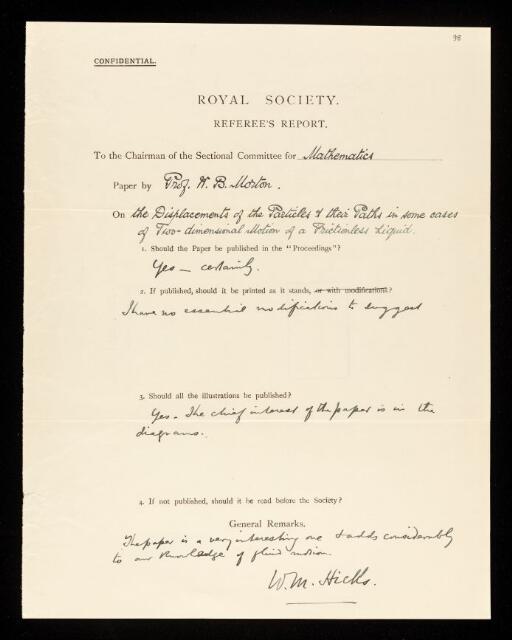 98
CONFIDENTIAL.
ROYAL SOCIETY.
REFEREE'S REPORT.
To the Chairman of the Sectional Committee for Mathematics
Paper by Prof. W. B. Morton.
On the Displacements of the Particles & their Paths in some cases
of Two-dimensional Motion of a Frictionless Liquid.
1. Should the Paper be published in the "Proceedings"?
Yes – certainly.
2. If published, should it be printed as it stands, or with modifications?
I have no essential modifications to suggest
3. Should all the illustrations be published?
Yes – The chief interest of the paper is in the
diagrams.
4. If not published, should it be read before the Society?
General Remarks.
The paper is a very interesting one & adds considerably
to our knowledge of fluid motion.
W. M. Hicks.